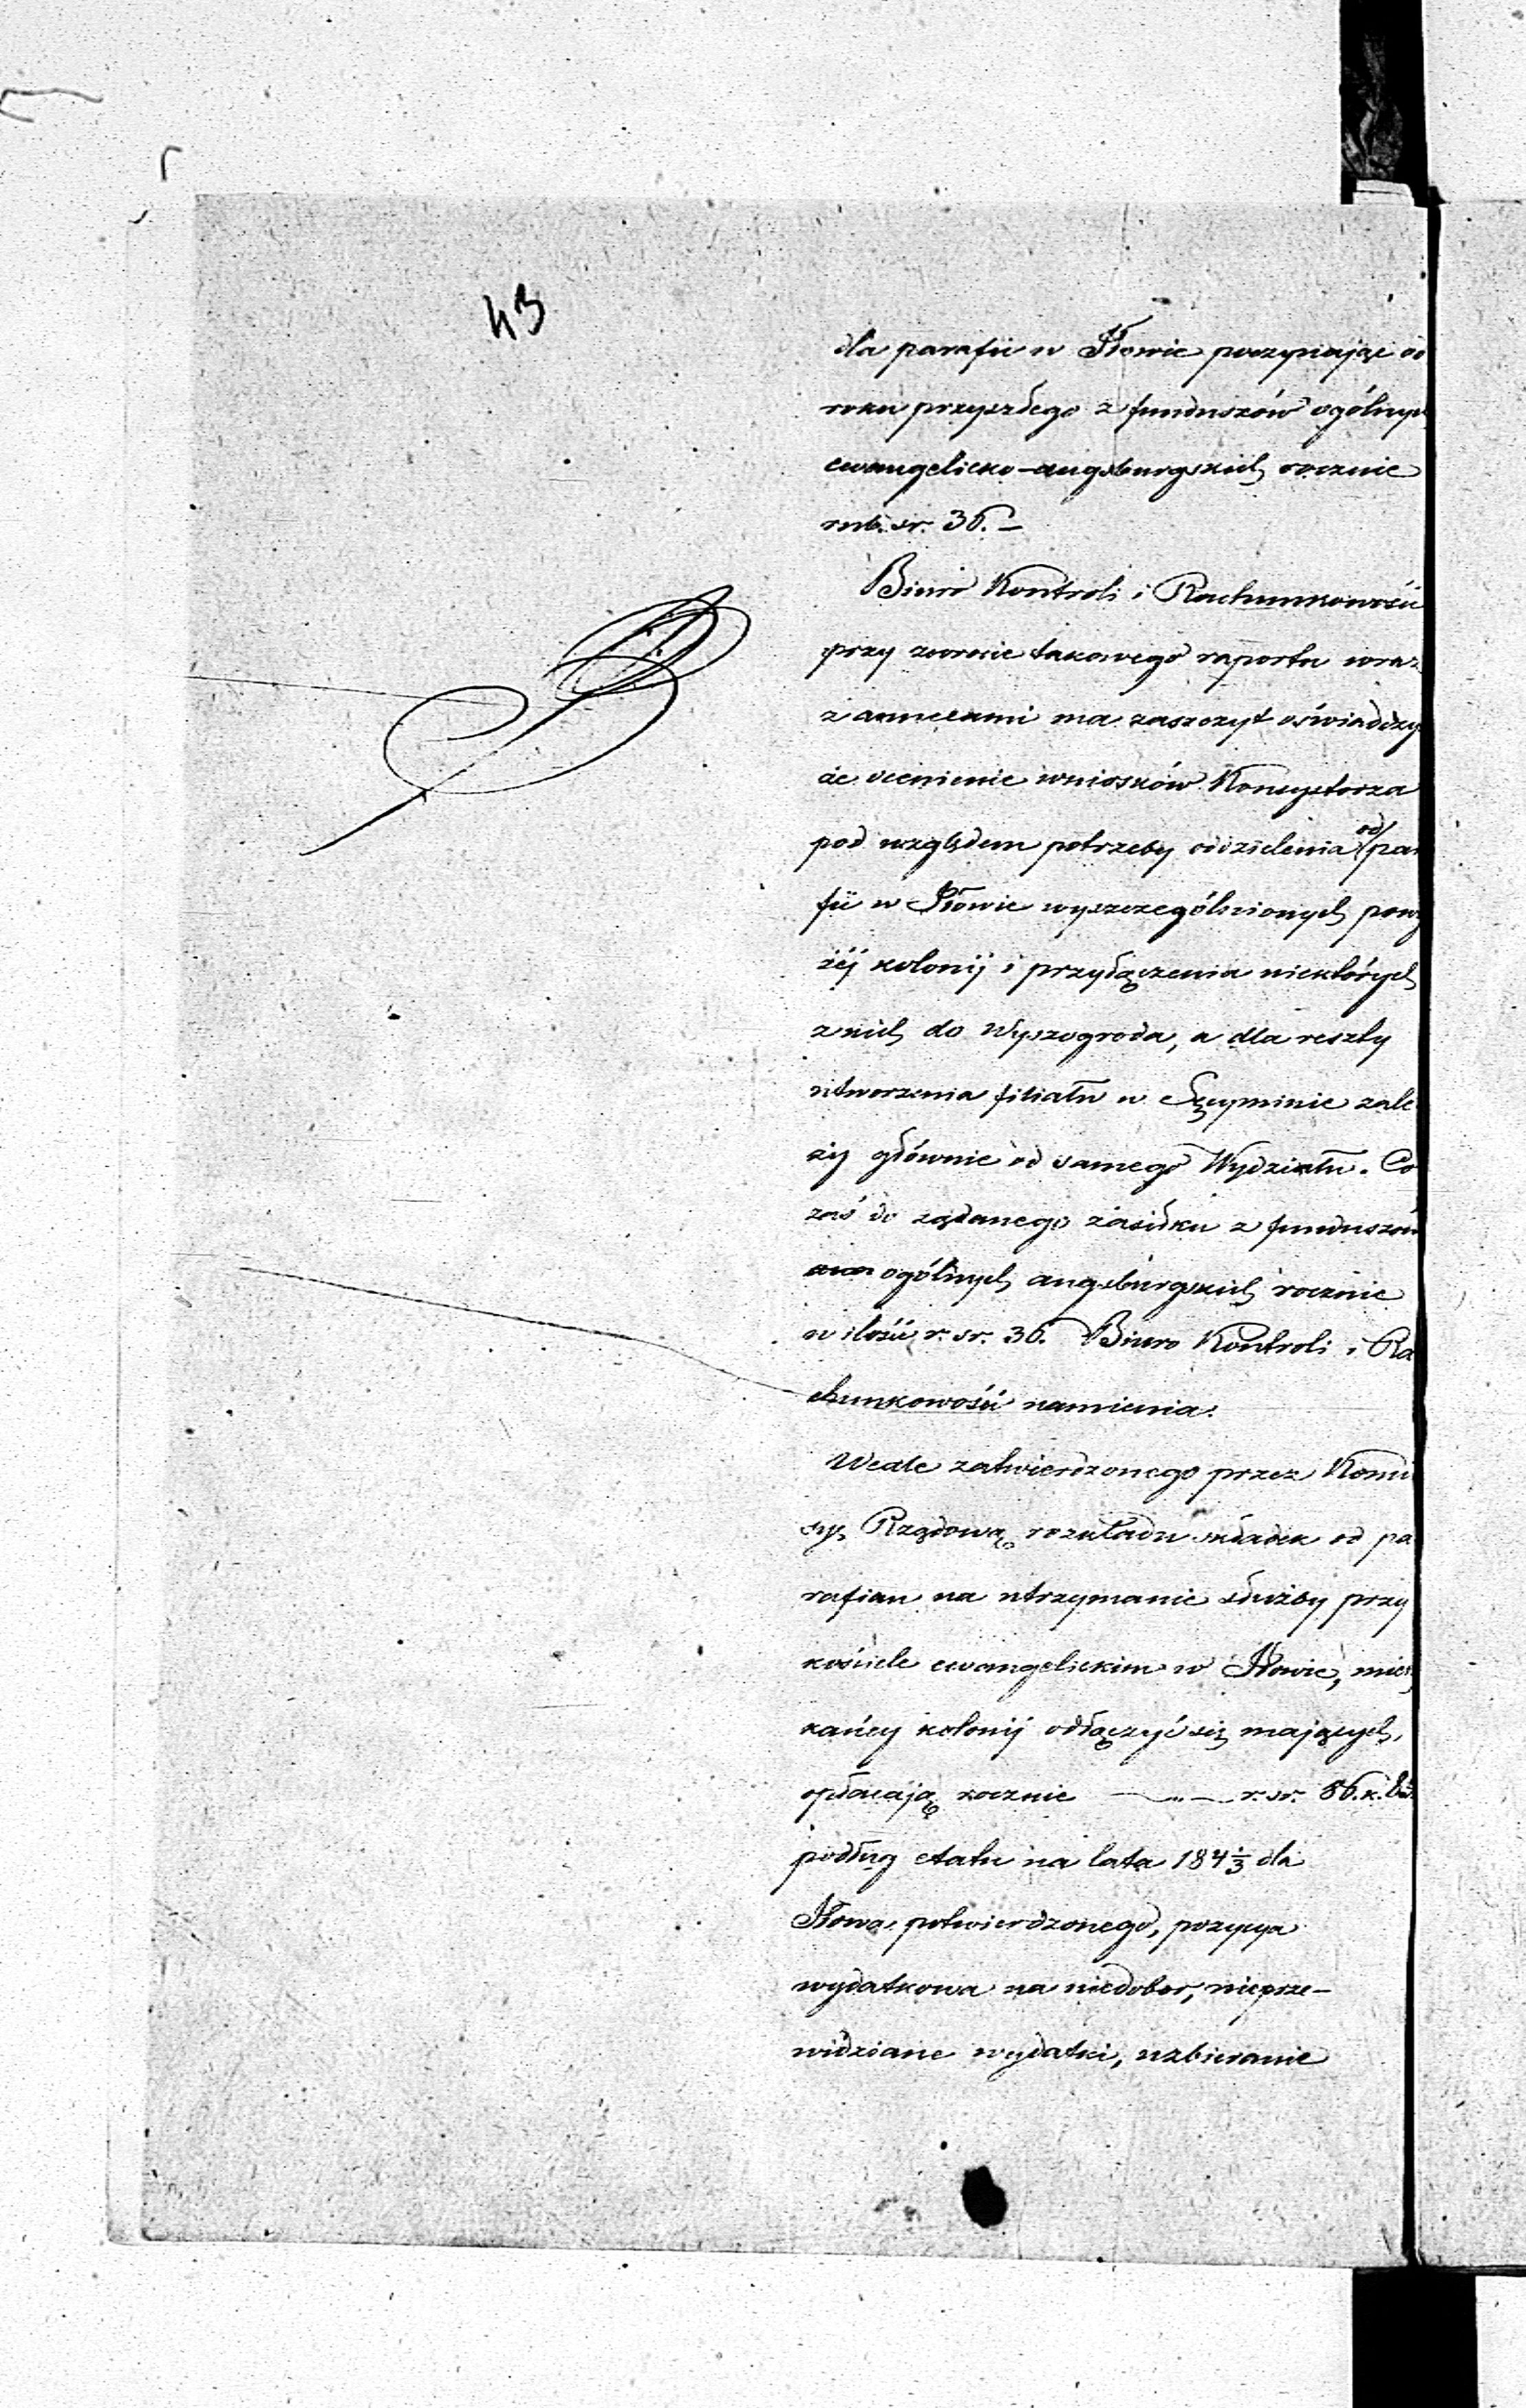 43
dla parafii w Iłowie poczynając od
roku przyszłego z funduszów ogólnych
ewangelicko-augsburgskich rocznie
rub. sr. 36.—
Biuro Kontroli i Rachunkowości
przy zwrocie takowego raportu wraz
z annexami ma zaszczyt oświadczyć
że ocenienie wniosków Konsystorza
pod względem potrzeby oddzielenia od para
fii w Iłowie wyszczególnionych powy
żéj kolonij i przyłączenia niektórych
z nich do Wyszogroda, a dla reszty
utworzenia filiału w Secyminie zale
ży głównie od samego Wydziału. Co
zaś do żądanego zasiłku z funduszów
ogólnych augsburgskich rocznie
w ilości r. sr. 36. Biuro Kontroli i Ra
chunkowości namienia.
Wedle zatwierdzonego przez Kommi
syę Rządową rozkładu składek od pa
rafian na utrzymanie służby przy
kościele ewangelickim w Iłowie, miesz
kańcy kolonij odłączyć się mających,
opłacają rocznie — „ — r. sr. 86. k.
podług etatu na lata 184 1/3 dla
Iłowa potwierdzonego, pozycya
wydatkowa na niedobor, nieprze-
widziane wydatki, uzbieranie